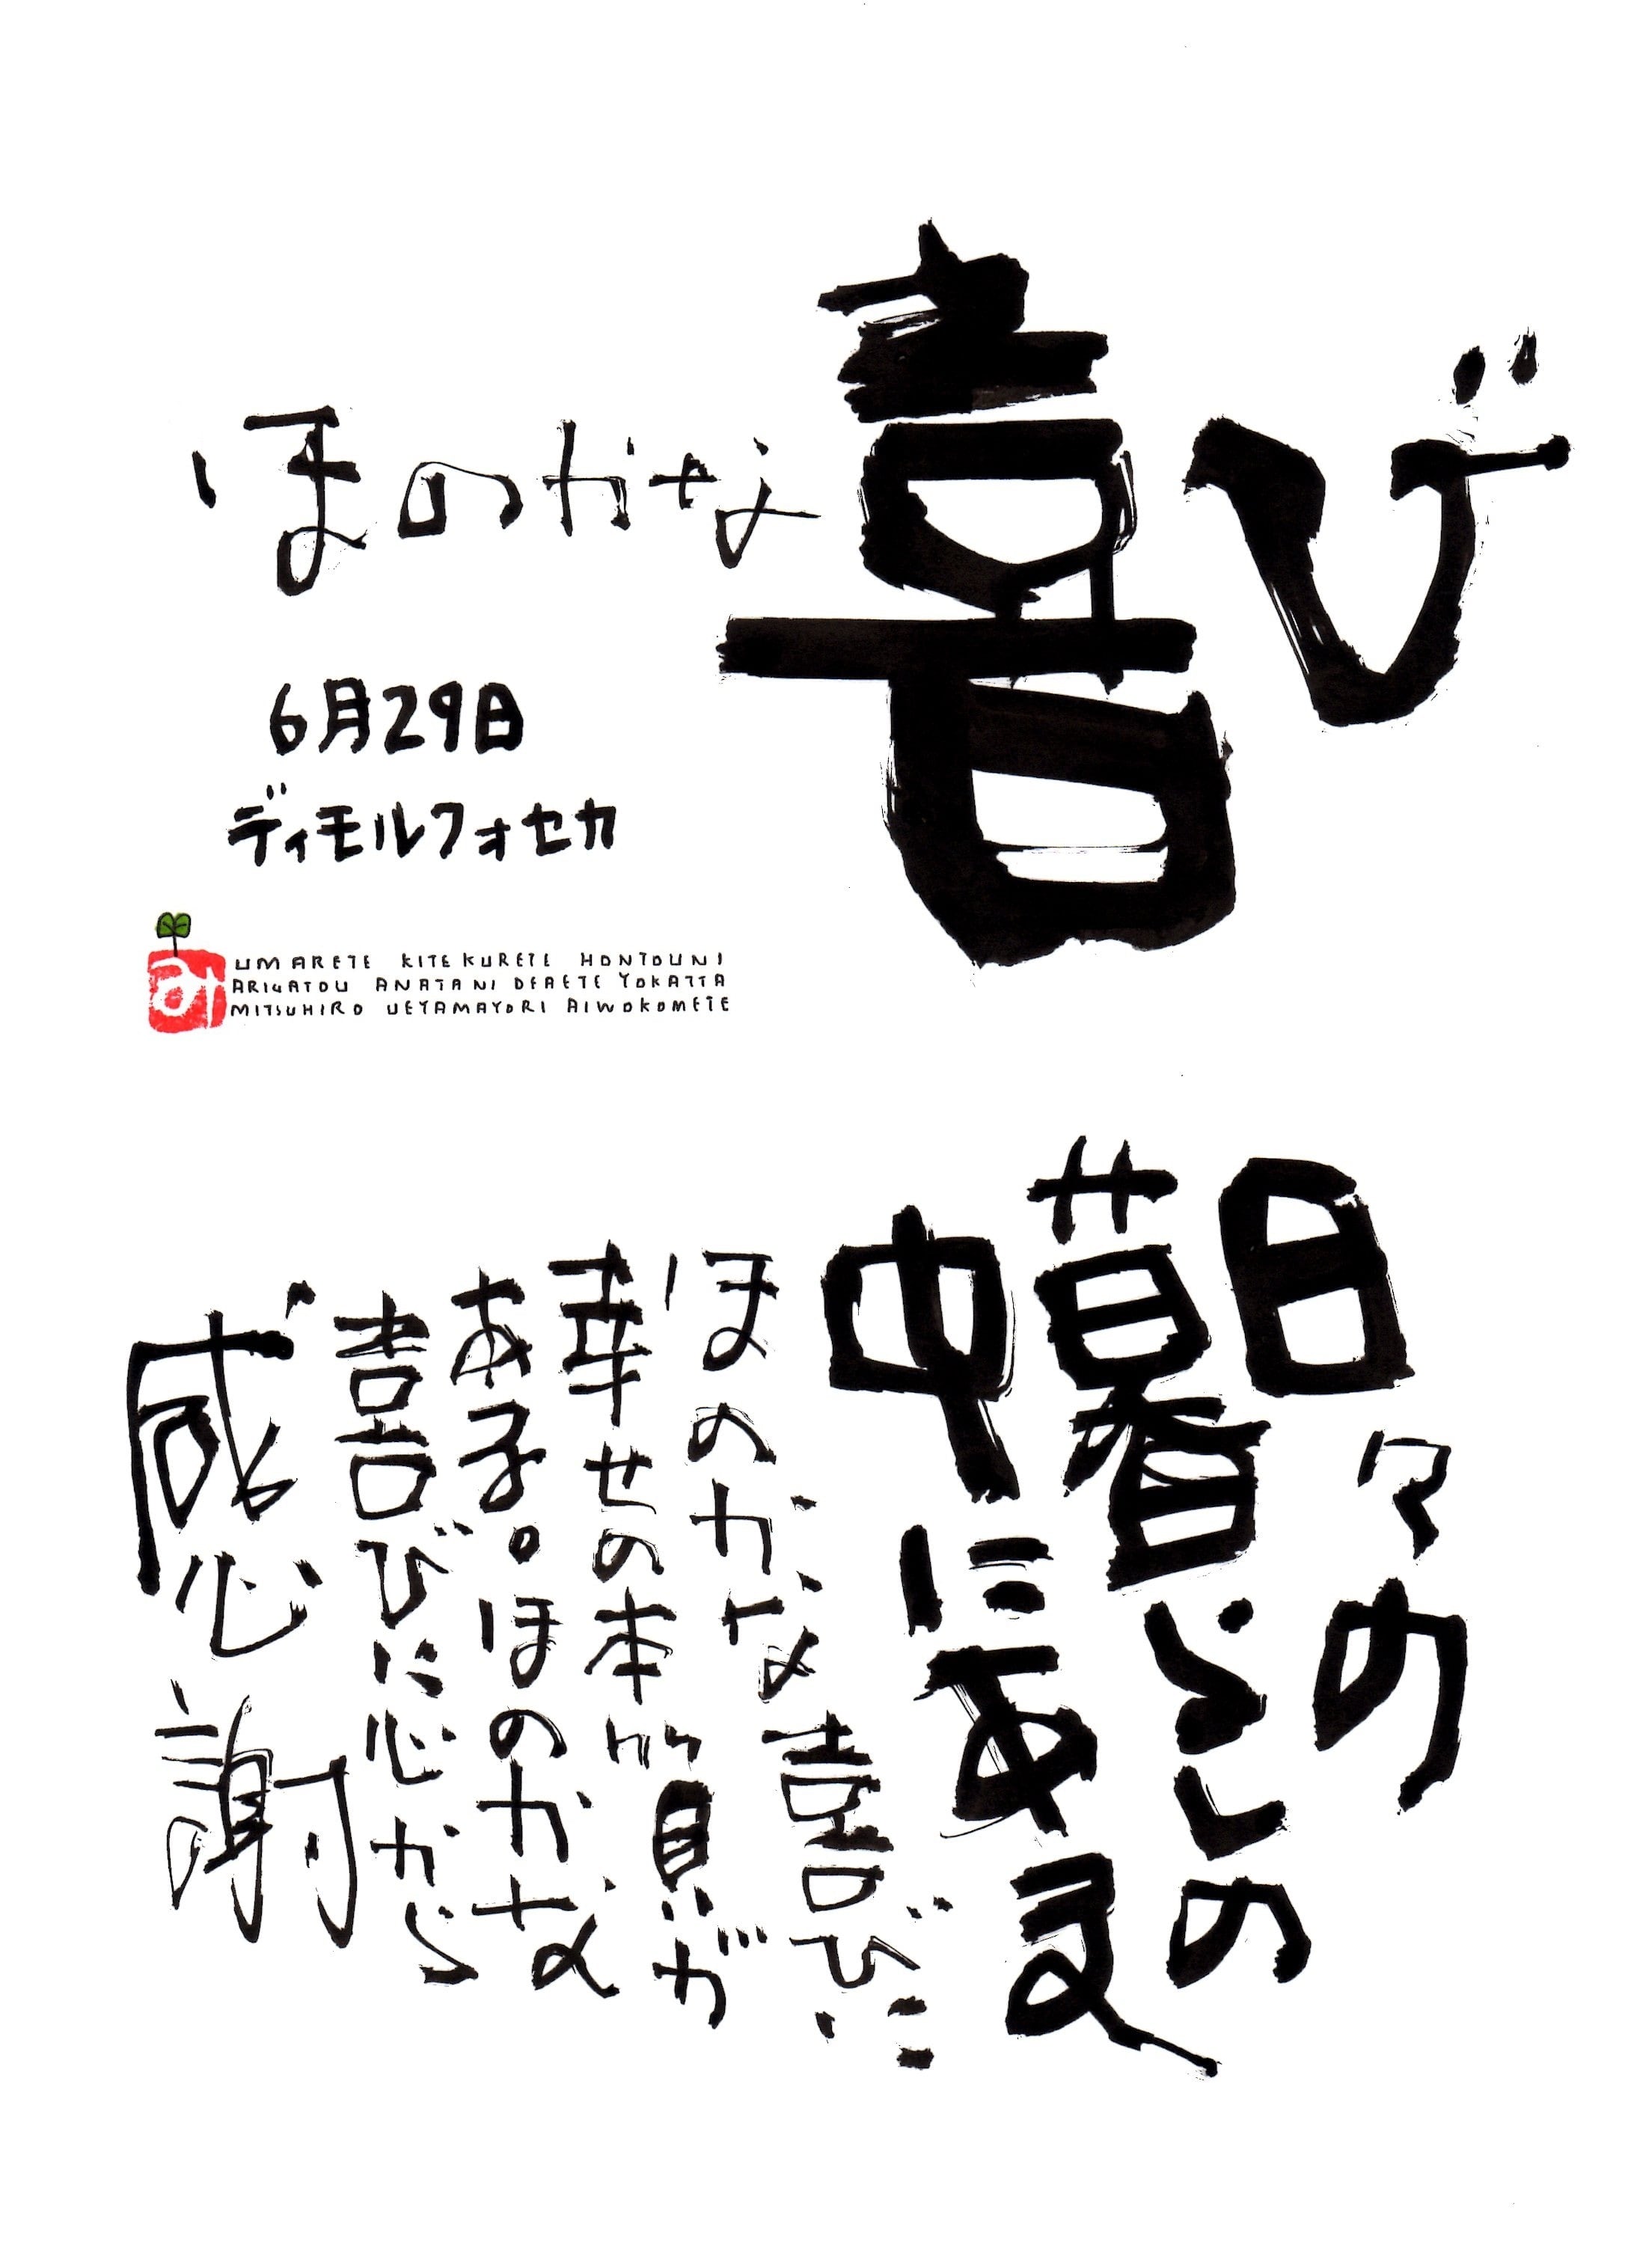 ほのかな喜び
6月29日
ディモルフォセカ
UMARETE KITEKURETE HONTOUNI
ARIGATOU ANATANI DEAETE YOKATTA
MITSUHIRO UEYAMAYORI AIWOKOMETE
日々の
暮らしの
中にある
ほのかな喜びに
幸せの本質が
ある。ほのかな
喜びに心から
感謝